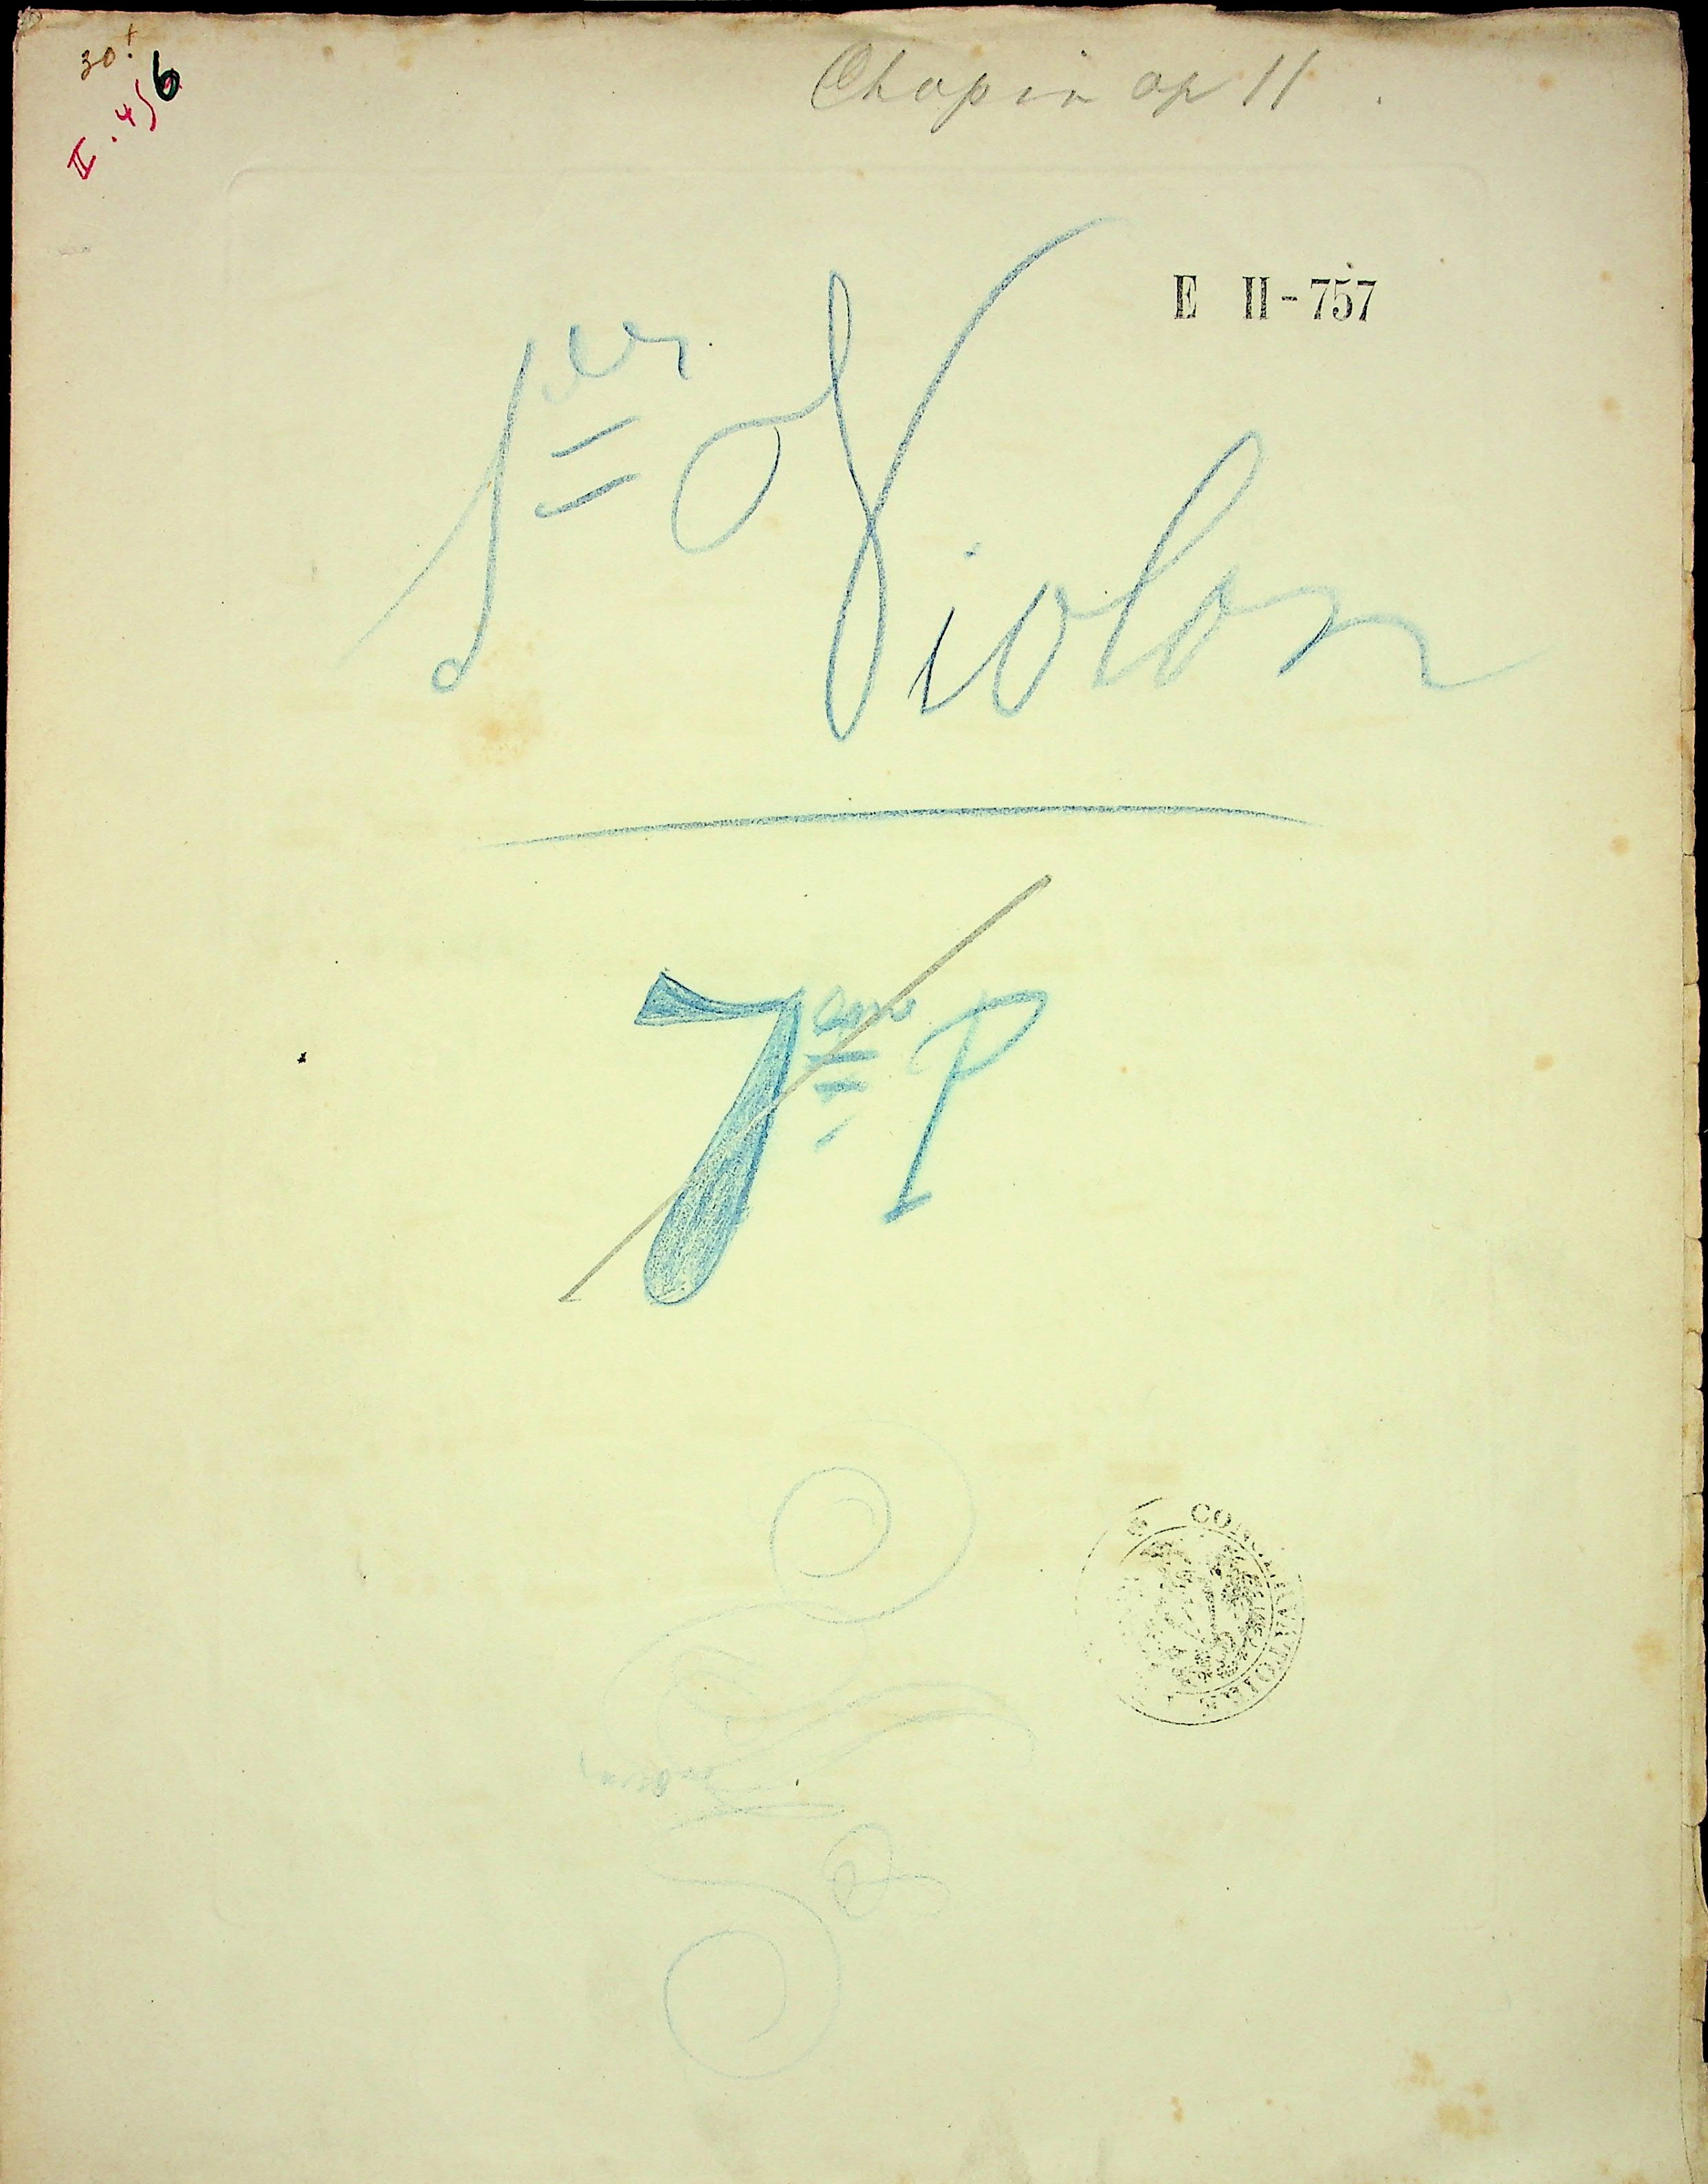 30!
II.4) 6
Chopin op 11.
E II-757
1er Violon
7eme P
CONSERVATOIRE